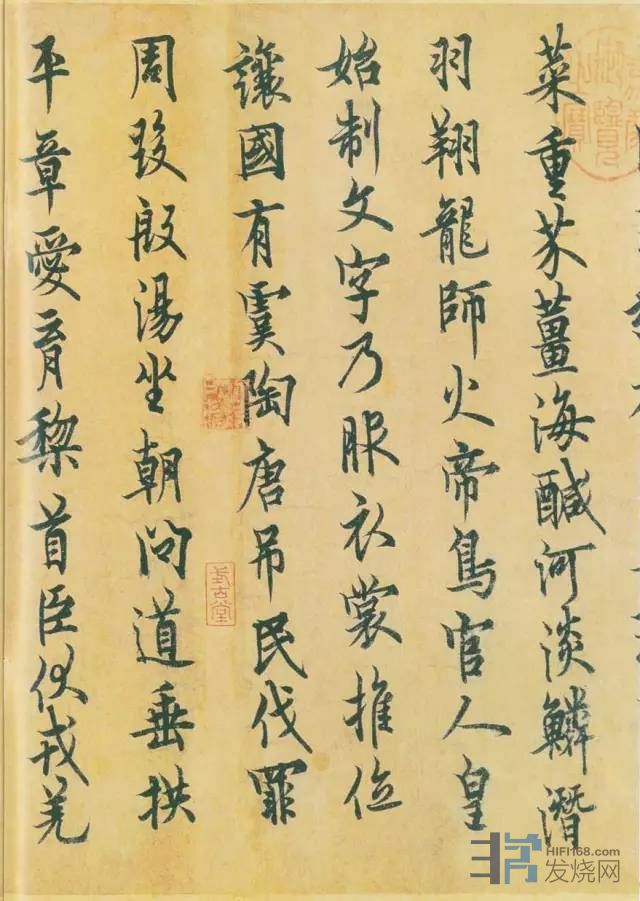 菜重芥薑海醎河淡鱗潛
羽翔龍師火帝鳥官人皇
始制文字乃服衣裳推位
讓國有虞陶唐吊民伐罪
周發殷湯坐朝問道垂拱
平章愛育黎首臣伏戎羌
式古堂
HIFI168.com
发烧网